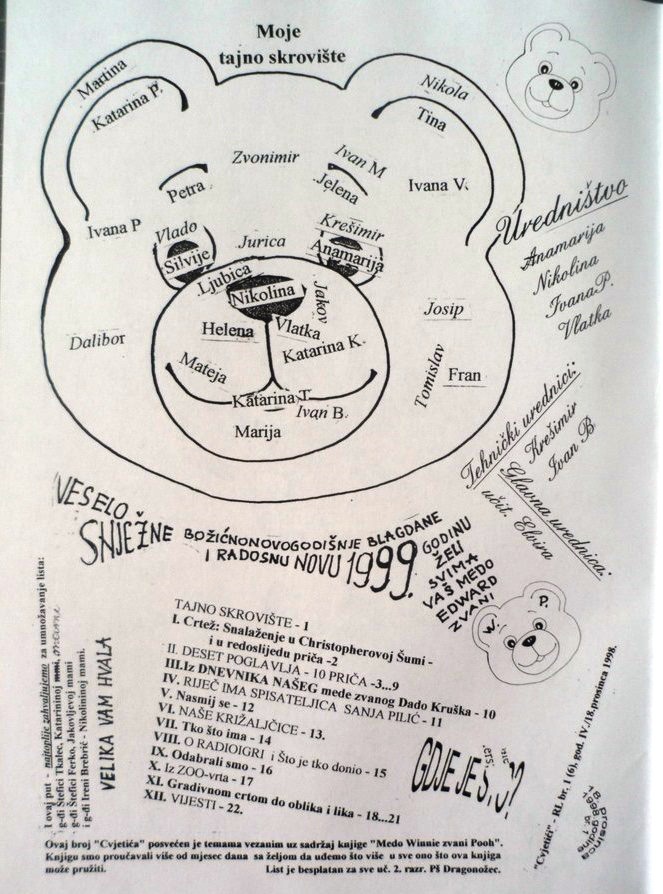 Moje
tajno skrovište
Martina
Katarina P.
Nikola
Tina
Zvonimir
Ivan M
Petra
Jelena
Ivana V.
Ivana P
Vlado
Silvije
Jurica
Krešimir
Anamarija
Ljubica
Nikolina
Jakov
Helena
Vlatka
Katarina K.
Josip
Dalibor
Mateja
Tomislav
Fran
Katarina T.
Ivan B.
Marija
Uredništvo
Anamarija
Nikolina
Ivana P.
Vlatka
Tehnički urednici:
Krešimir
Ivan B
Glavna urednica:
učit. Elvira
VESELO
SNJEŽNE BOŽIĆNONOVOGODIŠNJE BLAGDANE
I RADOSNU NOVU 1999. GODINU
ŽELI
SVIMA
VAŠ MEDO
EDWARD
ZVANI
W. P.
TAJNO SKROVIŠTE - 1
I. Crtež: Snalaženje u Christopherovoj Šumi -
i u redoslijedu priča -2
II. DESET POGLAVLJA - 10 PRIČA -3...9
III.Iz DNEVNIKA NAŠEG mede zvanog Dado Kruška - 10
IV. RIJEČ IMA SPISATELJICA SANJA PILIĆ - 11
V. Nasmij se - 12
VI. NAŠE KRIŽALJČICE - 13.
VII. Tko što ima - 14
VIII. O RADIOIGRI i Što je tko donio - 15
IX. Odabrali smo - 16
X. Iz ZOO-vrta - 17
XI. Gradivnom crtom do oblika i lika - 18...21
XII. VIJESTI - 22.
GDJE JE
I ovaj put - najtoplije zahvaljujemo za umnožavanje lista:
g-đi Štefici Tkalec, Katarininoj mami,
g-đi Štefici Ferko, Jakovljevoj mami
i g-đi Ireni Brebrić - Nikolininoj mami.
VELIKA VAM HVALA
"Cvjetići" - RI, br. 1 (6), god. IV./18.prosinca 1998.
prosinca
Ovaj broj "Cvjetića" posvećen je temama vezanim uz sadržaj knjige "Medo Winnie zvani Pooh".
Knjigu smo proučavali više od mjesec dana sa željom da uđemo što više u sve ono što ova knjiga
može pružiti. List je besplatan za sve uč. 2. razr. Pš Dragonožec.